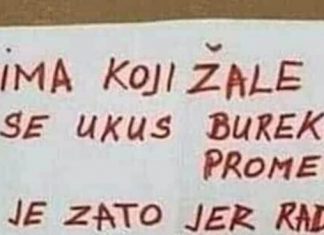 IMA KOJI ŽALE
SE UKUS BUREK
PROME
JE ZATO JER RAD